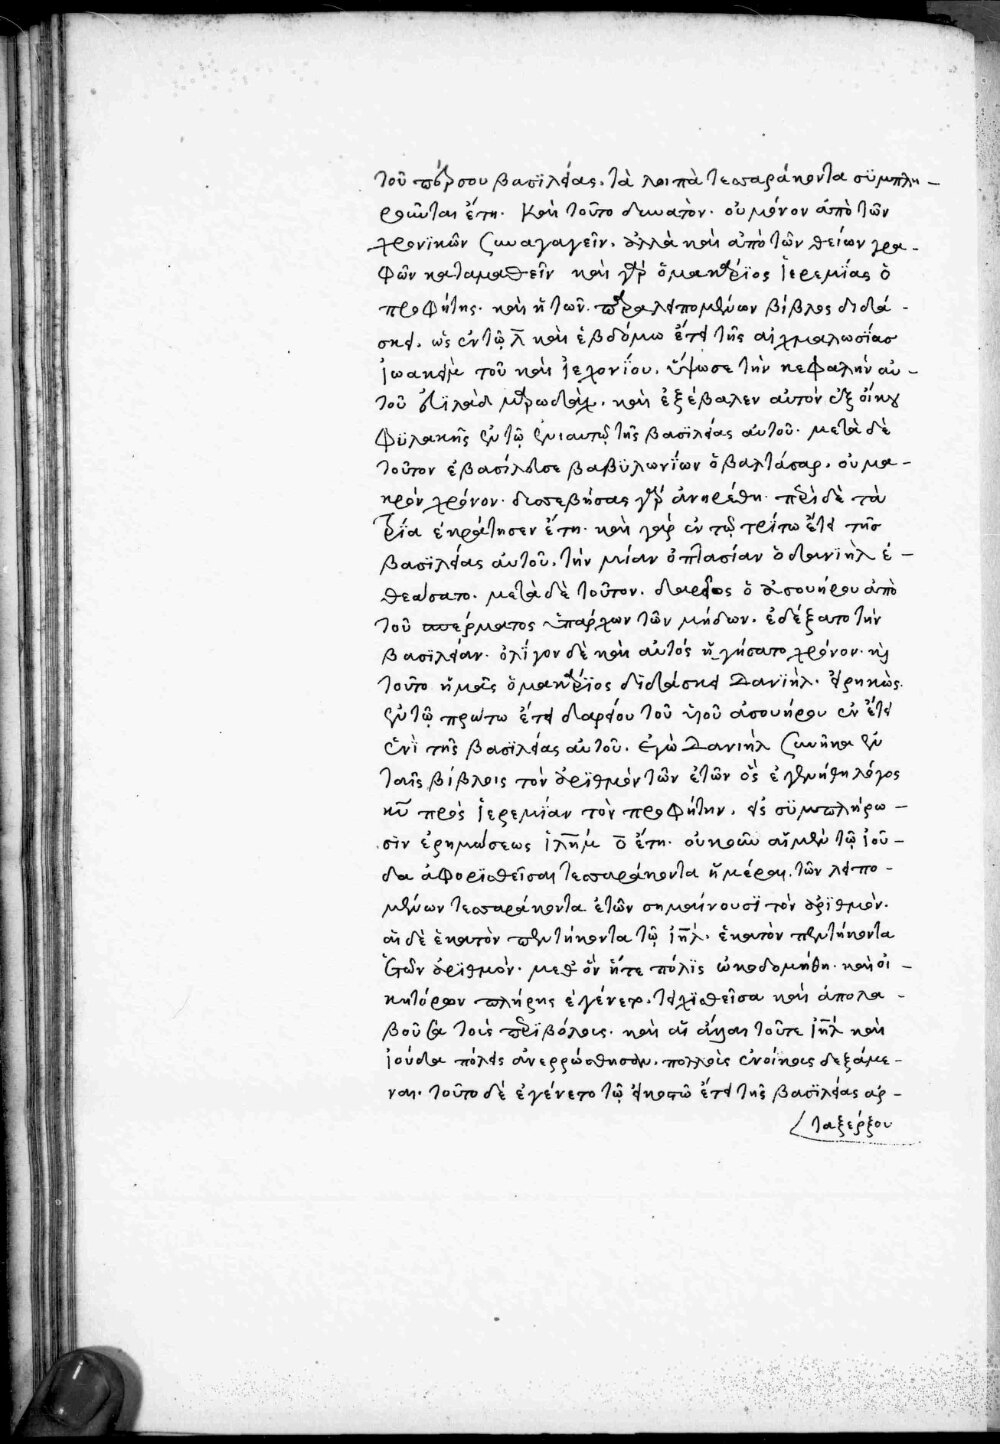 τοῦ πέρσου βασϊλείας. τὰ λοιπὰ τεσσαράκοντα σϋμπλη-
ροῦνται ἔτη. Καὶ τοῦτο δυνατὸν. οὐ μόνον ἀπὸ τῶν
χρονϊκῶν συναγαγεῖν. ἀλλὰ καὶ ἀπὸ τῶν θείων γρα-
φῶν καταμαθεῖν καὶ γὰρ ὁ μακάρϊος ἱερεμΐας ὁ
προφήτης. καὶ ἡ τῶν παραλειπομένων βίβλος διδά-
σκει. ὡς ἐν τῷ λ̅ καὶ ἑβδόμω ἔτει τῆς αἰχμαλωσΐασ
ἰωακεὶμ τοῦ καὶ ἰεχονΐου. ὕψωσε τὴν κεφαλὴν αὐ-
τοῦ εὐϊλὰδ μαρωδὰχ. καὶ ἐξέβαλεν αὐτὸν ἐξ οἴκου
φϋλακῆς ἐν τῷ ἐνιαυτῷ τῆς βασϊλείας αὐτοῦ. μετὰ δὲ
τοῦτον ἐβασίλευσε βαβϋλωνΐων ὁ βαλτάσαρ. οὐ μα-
κρὸν χρόνον. δυσσεβήσας γὰρ ἀνηρέθη. περὶ δὲ τὰ
τρΐα ἐκράτησεν ἔτη. καὶ γὰρ ἐν τῷ τρΐτω ἔτει τῆσ
βασϊλείας αὐτοῦ. τὴν μίαν ὀπτασίαν ὁ δανϊὴλ ἐ-
θεάσατο. μετὰ δὲ τοῦτον. δαρεῖος ὁ ἀσουήρου ἀπὸ
τοῦ σπέρματος ὑπάρχων τῶν μήδων. ἐδέξατο τὴν
βασϊλείαν. ὀλΐγον δὲ καὶ αὐτὸς ἡγήσατο χρόνον. κὶ
τοῦτο ἡμᾶς ὁ μακάρϊος δϊδάσκει Δανϊὴλ. εἰρηκὼς.
ἐν τῷ πρώτω ἔτει δαρείου τοῦ ὑιοῦ ἀσουήρου ἐν ἔτει
ἑνῒ τῆς βασϊλείας αὐτοῦ. ἐγὼ Δανιὴλ συνῆκα ἐν
ταῖς βίβλοις τὸν ἀρϊθμὸν τῶν ἐτῶν ὃς ἐγενήθη λόγος
κυ̅ πρὸς ἱερεμΐαν τὸν προφήτην. εἰς σϋμπλήρω-
σϊν ἐρημώσεως ἰλη̅μ ο̅ ἔτη. οὐκοῦν αἵ μὲν τῷ ἰού-
δα ἀφορϊσθεῖσαι τεσσαράκοντα ἡμέραι. τῶν λειπο-
μένων τεσσαράκοντα ἐτῶν σημαίνουσϊ τὸν ἀρϊθμὸν.
αἱ δὲ ἑκατὸν πεντήκοντα τῷ ἰη̅λ. ἑκατὸν πεντήκοντα
ἐτῶν ἀρϊθμὸν. μεθ ὃν ἥτε πόλϊς ὠκοδομήθη. καὶ οἰ-
κητόρων πλήρης ἐγένετο. τειχϊσθεῖσα καὶ ἀπολα-
βοῦσα τοὺς περϊβόλους. καὶ αἵ ἄλλαι τοῦτε ἰη̅λ καὶ
ἰούδα πόλεις ἀνερρώσθησαν. πολλοὺς ἐνοίκους δεξάμε-
ναι. τοῦτο δὲ ἐγένετο τῷ εἰκοστῷ ἔτει τῆς βασϊλείας ἀρ-
ταξέρξου